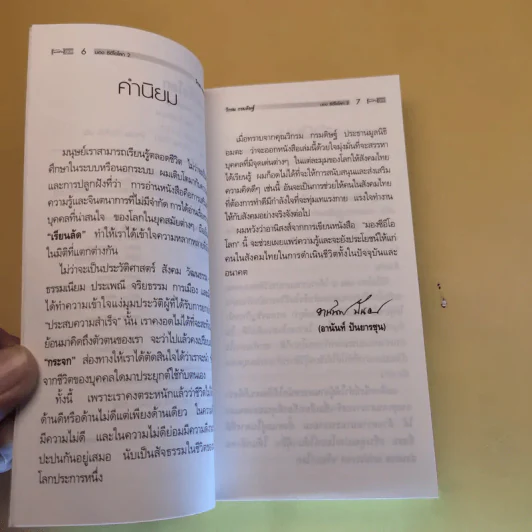 6 มอง ซีอีโอโลก 2
คำนิยม
มนุษย์เราสามารถเรียนรู้ตลอดชีวิต ไม่ว่าจะ
ศึกษาในระบบหรือนอกระบบ ผมเติบโตมากับ
และการปลูกฝังที่ว่า การอ่านหนังสือคือการ
รู้และจินตนาการที่ไม่มีจำกัด การได้อ่านเรื่อง
บุคคลที่น่าสนใจ ของโลกในยุคสมัยต่างๆ
"เรียนลัด" ทำให้เราได้เข้าใจความหลากหลาย
ในมิติที่แตกต่างกัน
ไม่ว่าจะเป็นประวัติศาสตร์ สังคม วัฒนธรรม
ธรรมเนียม ประเพณี จริยธรรม การเมือง และ
ได้ทำความเข้าใจแง่มุมประวัติผู้ที่ได้รับการ
"ประสบความสำเร็จ" นั้น เราคงอดไม่ได้ที่จะ
ย้อนมาคิดถึงตัวตนของเรา จะว่าไปแล้วคง
"กระจก" ส่องทางให้เราได้ตัดสินใจได้ว่าเราจะ
จากชีวิตของบุคคลใดมาประยุกต์ใช้กับตนเอง
ทั้งนี้ เพราะเราคงตระหนักแล้วว่าชีวิต
ด้านดีหรือด้านไม่ดีแต่เพียงด้านเดียว ในความ
มีความไม่ดี และในความไม่ดีย่อมมีความดี
ปะปนกันอยู่เสมอ นับเป็นสัจธรรมในชีวิต
โลกประการหนึ่ง
วิกรม กรมดิษฐ์ มอง ซีอีโอโลก 2 7
เมื่อทราบจากคุณวิกรม กรมดิษฐ์ ประธานมูลนิธิ
อมตะ ว่าจะออกหนังสือเล่มนี้ด้วยใจมุ่งมั่นที่จะสรรหา
บุคคลที่มีจุดเด่นต่างๆ ในแต่ละมุมของโลกให้สังคมไทย
ได้เรียนรู้ ผมก็อดไม่ได้ที่จะให้การสนับสนุนและส่งเสริม
ความคิดดีๆ เช่นนี้ อันจะเป็นการช่วยให้คนในสังคมไทย
ที่ต้องการทำดีมีกำลังใจที่จะทุ่มเทแรงกาย แรงใจทำงาน
ให้กับสังคมอย่างจริงจังต่อไป
ผมหวังว่าอานิสงส์จากการเขียนหนังสือ "มองซีอีโอ
โลก" นี้ จะช่วยเผยแพร่ความรู้และจะยังประโยชน์ให้แก่
คนในสังคมไทยในการดำเนินชีวิตทั้งในปัจจุบันและ
อนาคต
(อานันท์ ปันยารชุน)